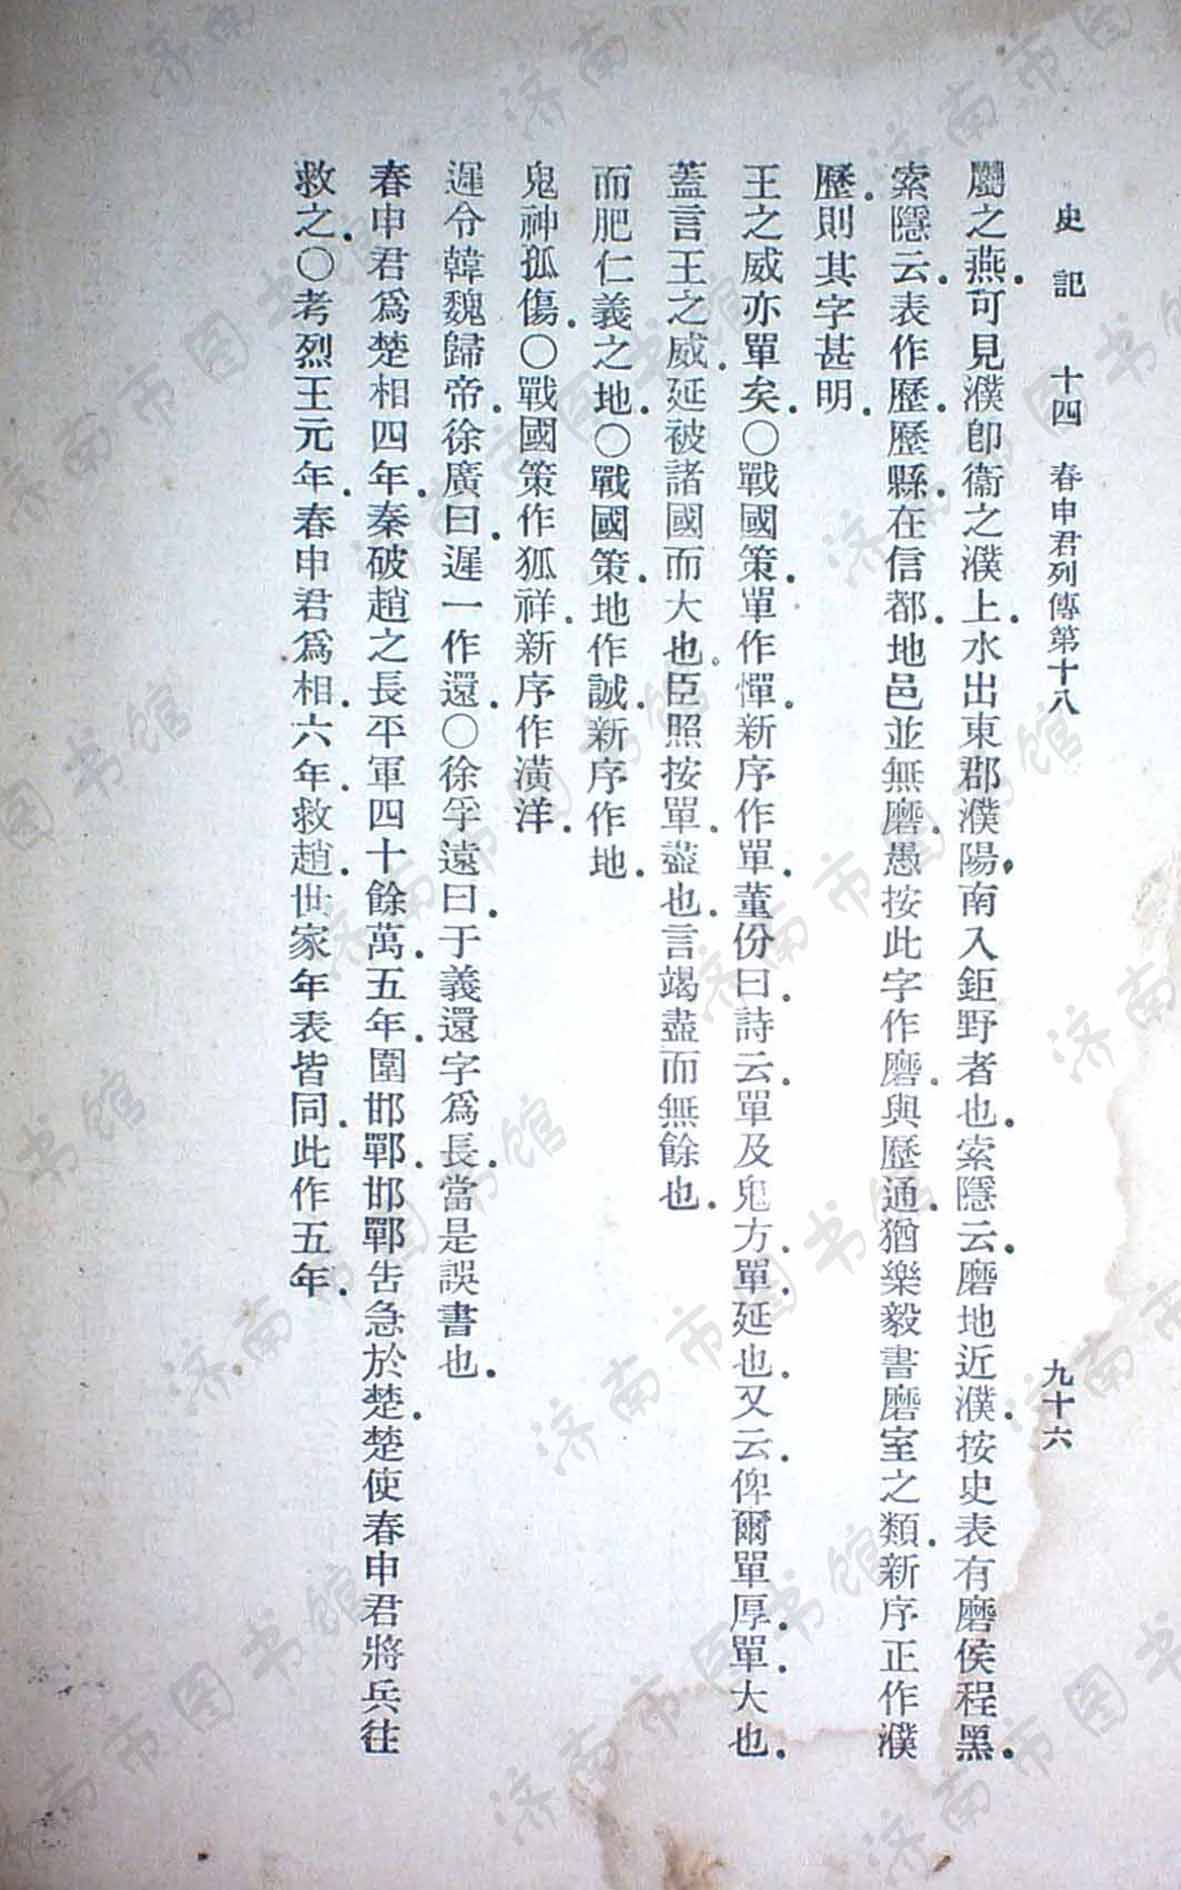 史記 十四 春申君列傳第十八 九十六
屬之燕.可見濮卽衞之濮上.水出東郡濮陽.南入鉅野者也.索隱云.磨地近濮.按史表有磨侯程黑.
索隱云.表作歷.歷縣.在信都.地邑並無磨.愚按此字作磨.與歷通.猶樂毅書磨室之類.新序正作濮
歷.則其字甚明.
王之威亦單矣.〇戰國策.單作憚.新序作單.董份曰.詩云.單及鬼方.單.延也.又云.俾爾單厚.單.大也.
蓋言王之威.延被諸國而大也.臣照按.單.盡也.言竭盡而無餘也.
而肥仁義之地.〇戰國策.地作誠.新序作地.
鬼神孤傷.〇戰國策作狐祥.新序作潢洋.
遲令韓魏歸帝.徐廣曰.遲一作還.〇徐孚遠曰.于義還字爲長.當是誤書也.
春申君爲楚相四年.秦破趙之長平軍四十餘萬.五年.圍邯鄲.邯鄲告急於楚.楚使春申君將兵往
救之.〇考烈王元年.春申君爲相.六年.救趙.世家年表皆同.此作五年.
济南市图书馆